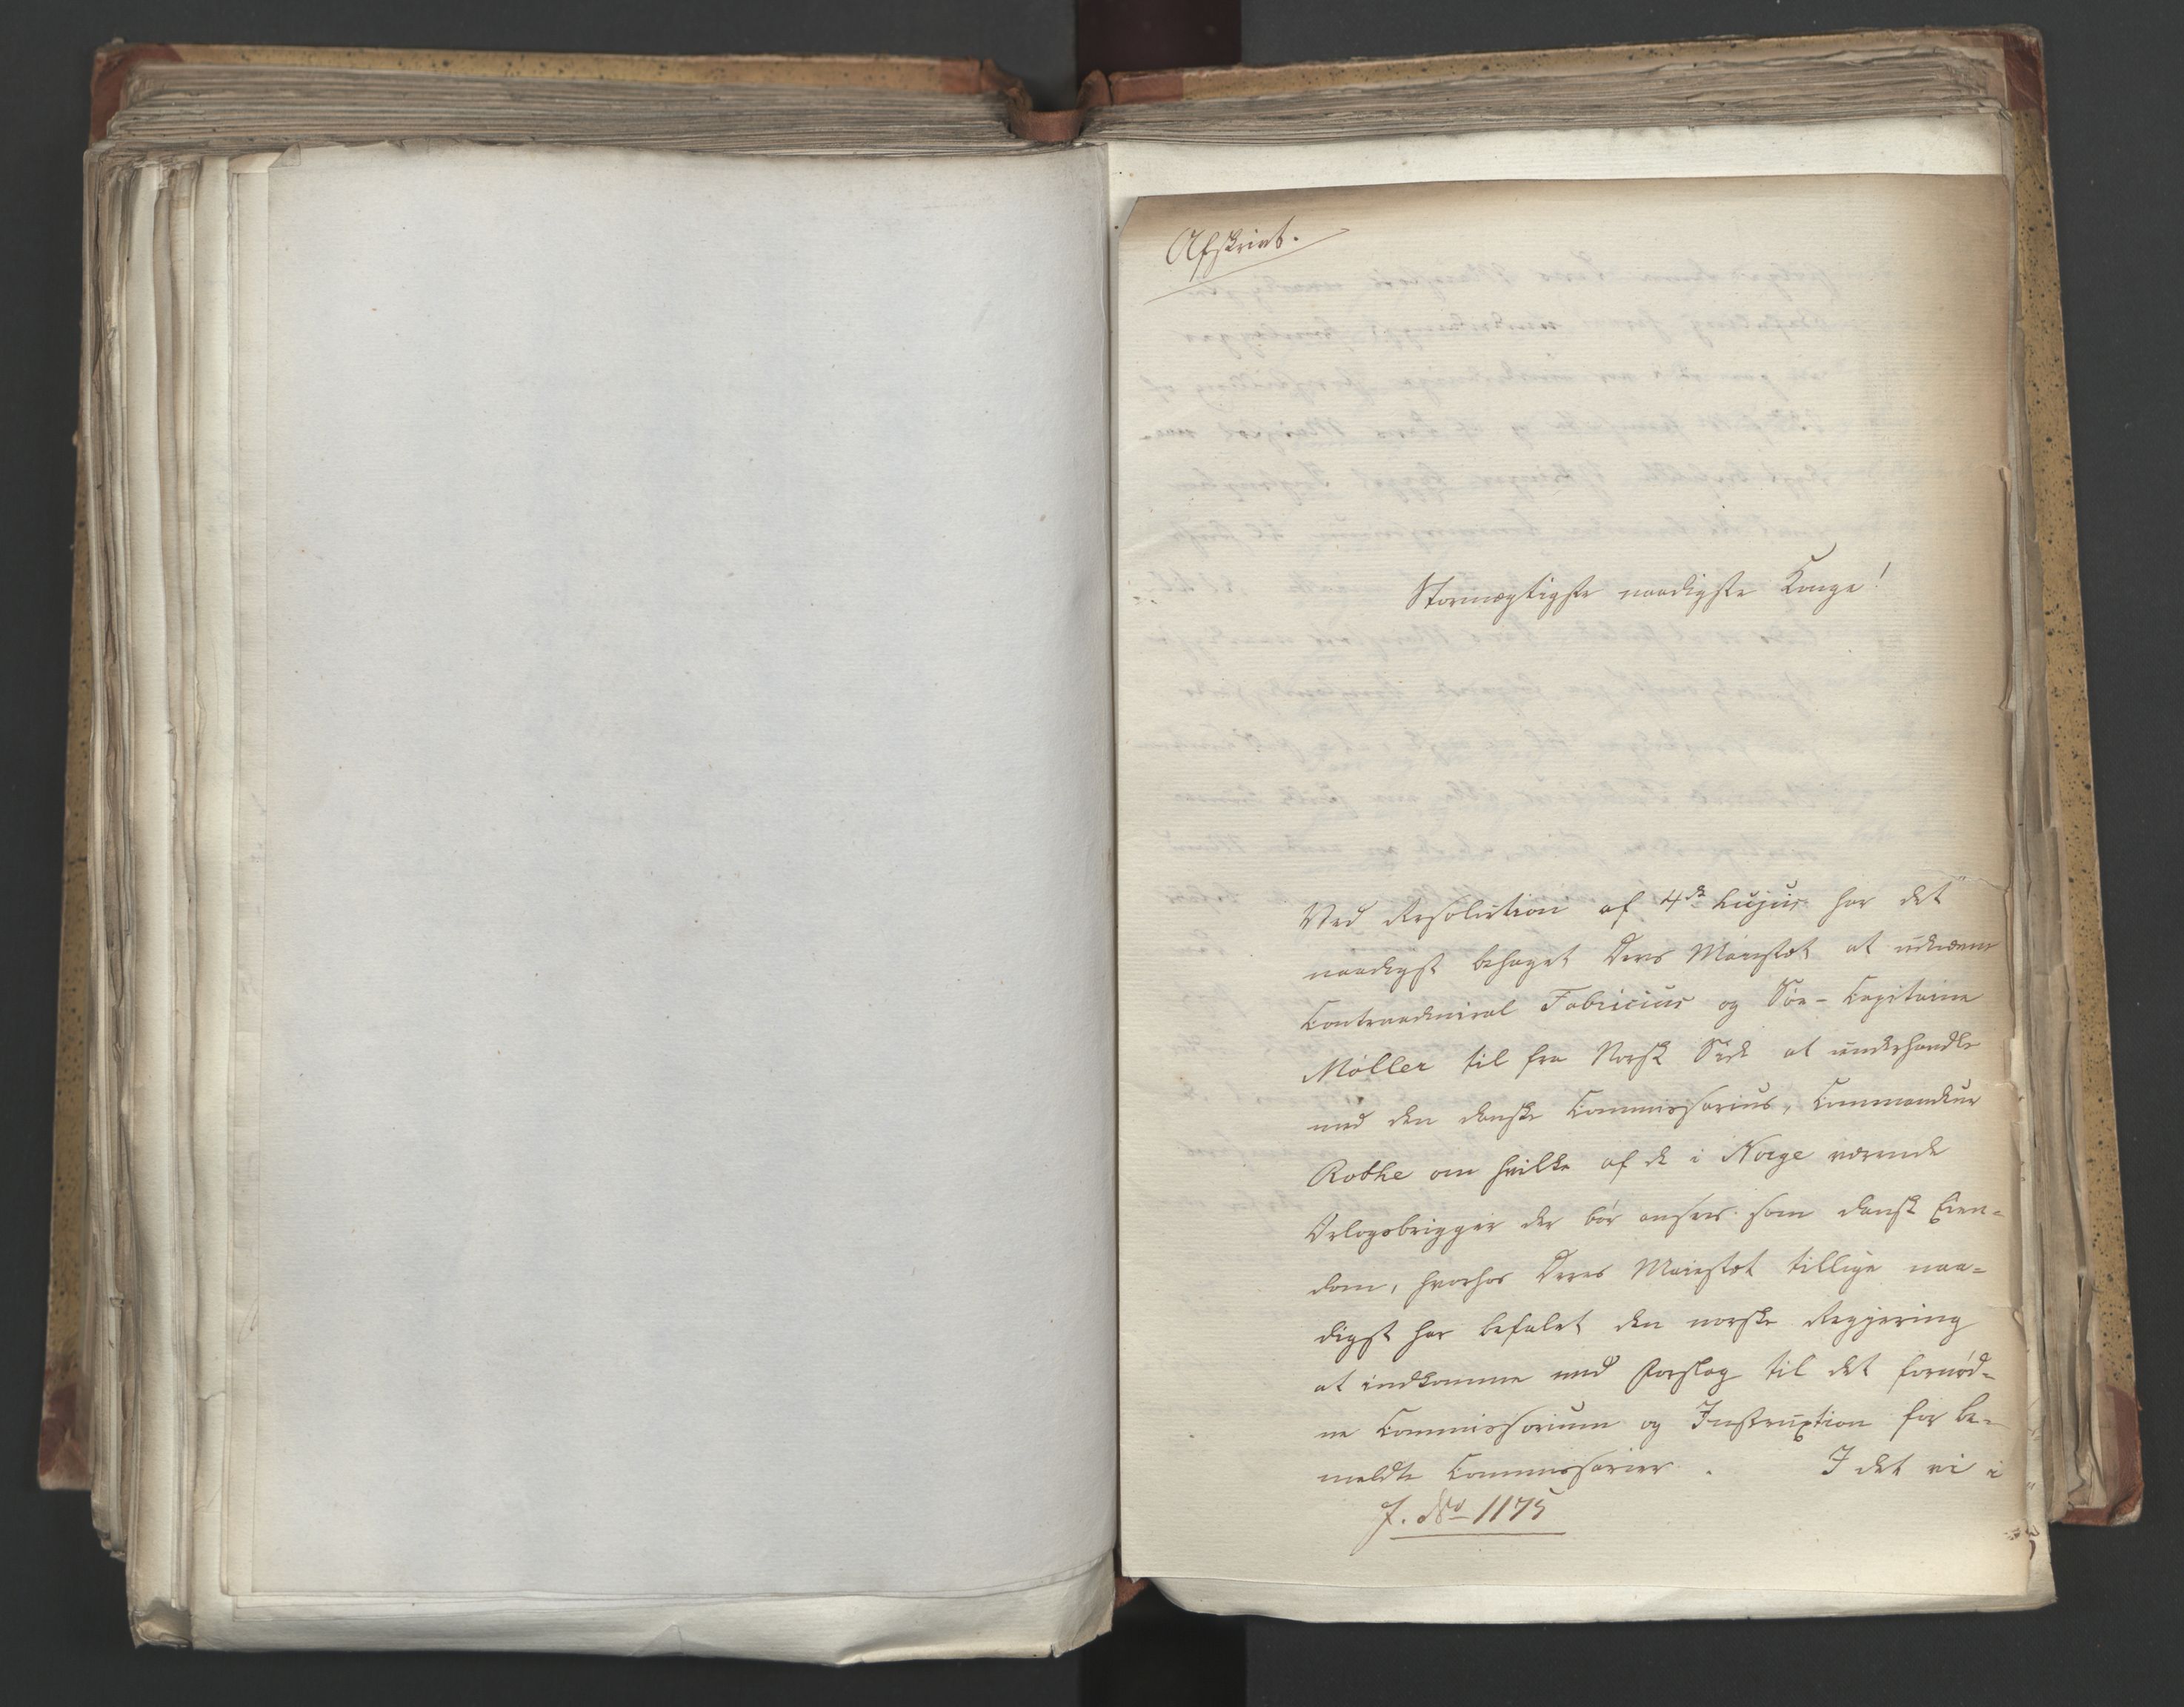 Afskrivt.
Stormægtigste naadigste Konge!
Ved Resolution af 4de hujus har det
naadigst behaget Deres Maiestæt at udnævne
Contraadmiral Fabricius og Søe-Capitaine
Møller til fra Norsk Side at underhandle
med den danske Commissarius, Commandeur
Rothe om hvilke af de i Norge værende
Orlogsbrigger der bør ansees som dansk Eien-
dom, hvorhos Deres Maiestæt tillige naa-
digst har befalet den norske Regjering
at indkomme med Forslag til det fornød-
ne Commissorium og Instruxtion for be-
meldte Commissarier. I det vi i
J. No 1175